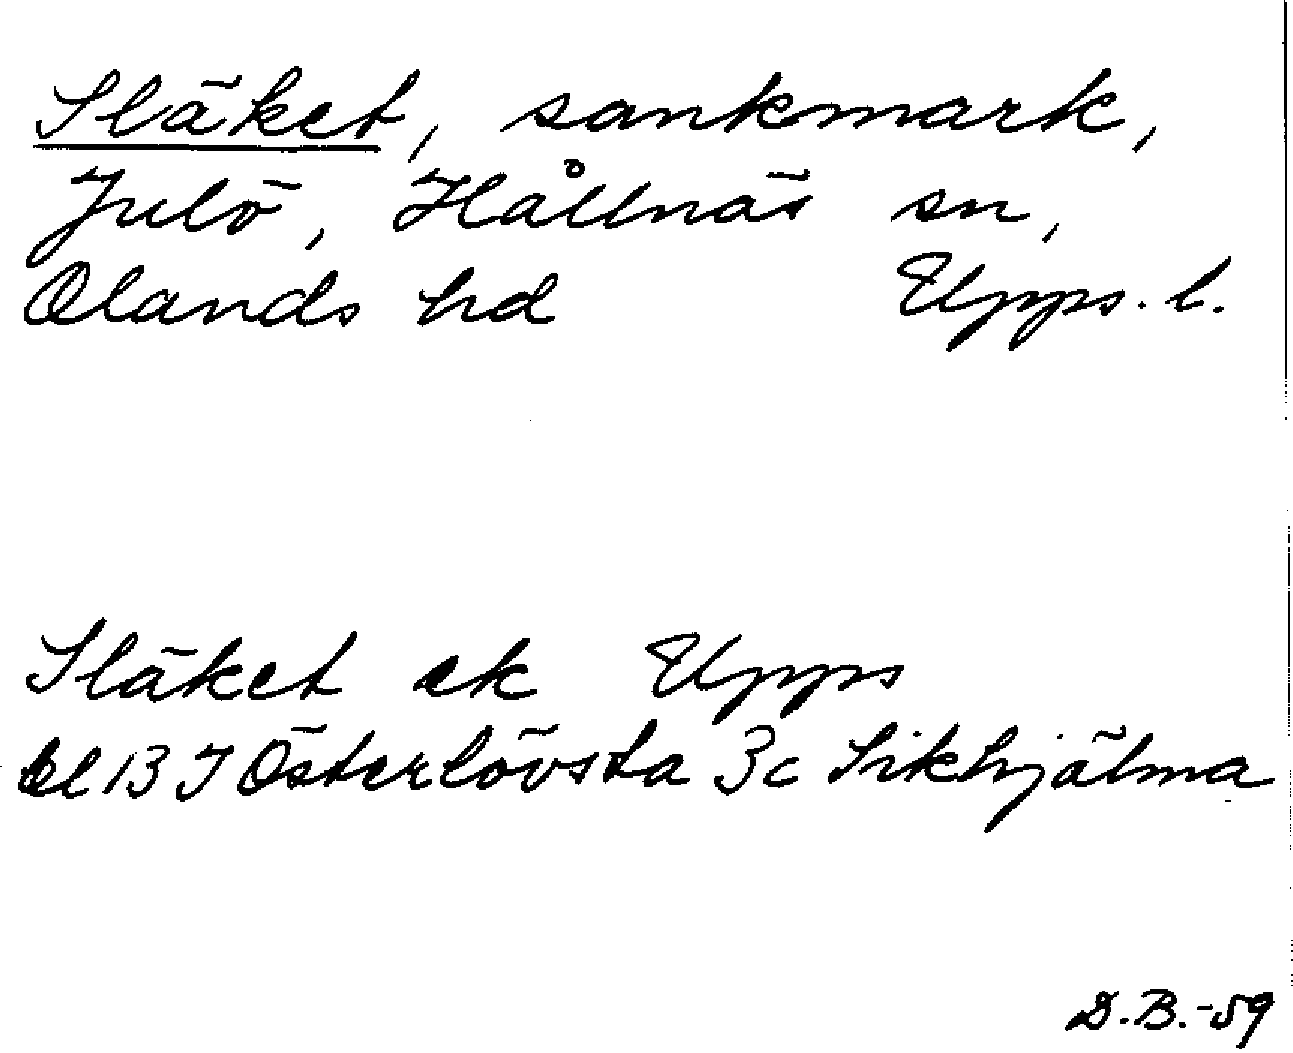 Släket, sankmark,
Julö, Hållnäs sn,
Olands hd Upps. l.
Släket ek Upps
bl 13 I Österlövsta 3c Sikhjälma
D.B.-59